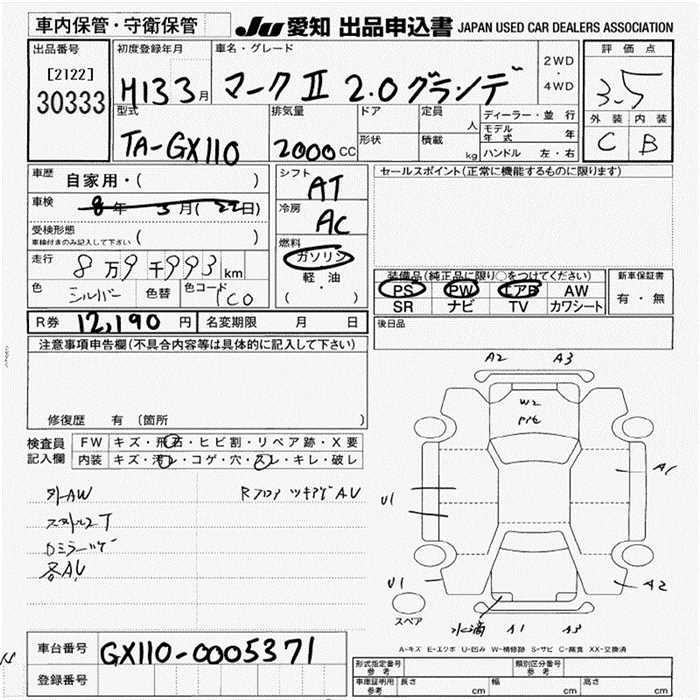 車内保管・守衛保管
JU 愛知 出品申込書 JAPAN USED CAR DEALERS ASSOCIATION
出品番号
[2122]
30333
初度登録年月
H13 3月
車名・グレード
マークⅡ 2.0グランデ
2WD
・
4WD
評価点
3.5
外装 内装
C B
型式
TA-GX110
排気量
2000 CC
ドア
形状
定員 人
積載 kg
ディーラー・並行
モデル年式 年
ハンドル 左・右
車歴 自家用・( )
車検 8年 3月(22日)
受検形態
車検付きのみ記入して下さい ( )
走行 8万9千993km
色 シルバー 色替 色コード 1C0
シフト
AT
冷房
AC
燃料
ガソリン
軽・油
( ・ )
セールスポイント(正常に機能するものに限ります)
装備品(純正品に限り○をつけてください)
PS PW エアB AW
SR ナビ TV カワシート
新車保証書
有・無
後日品
R券 12,190円 名変期限 月 日
注意事項申告欄(不具合内容等は具体的に記入して下さい)
修復歴 有(箇所 )
検査員
記入欄
FW キズ・飛石・ヒビ割・リペア跡・X要
内装 キズ・汚レ・コゲ・穴・スレ・キレ・破レ
外AW
Rフロア ツキアゲAU
各AU
A2 A3
W2
P12
A1
U1
U1
A2
スペア
水滴 A1 A3
A-キズ E-エクボ U-凹み W-補修跡 S-サビ C-腐食 XX-交換済
車台番号 GX110-0005371
登録番号
形式指定番号
参考
類別区分番号
参考
車庫証明用
参考
長さ cm 幅 cm 高さ cm